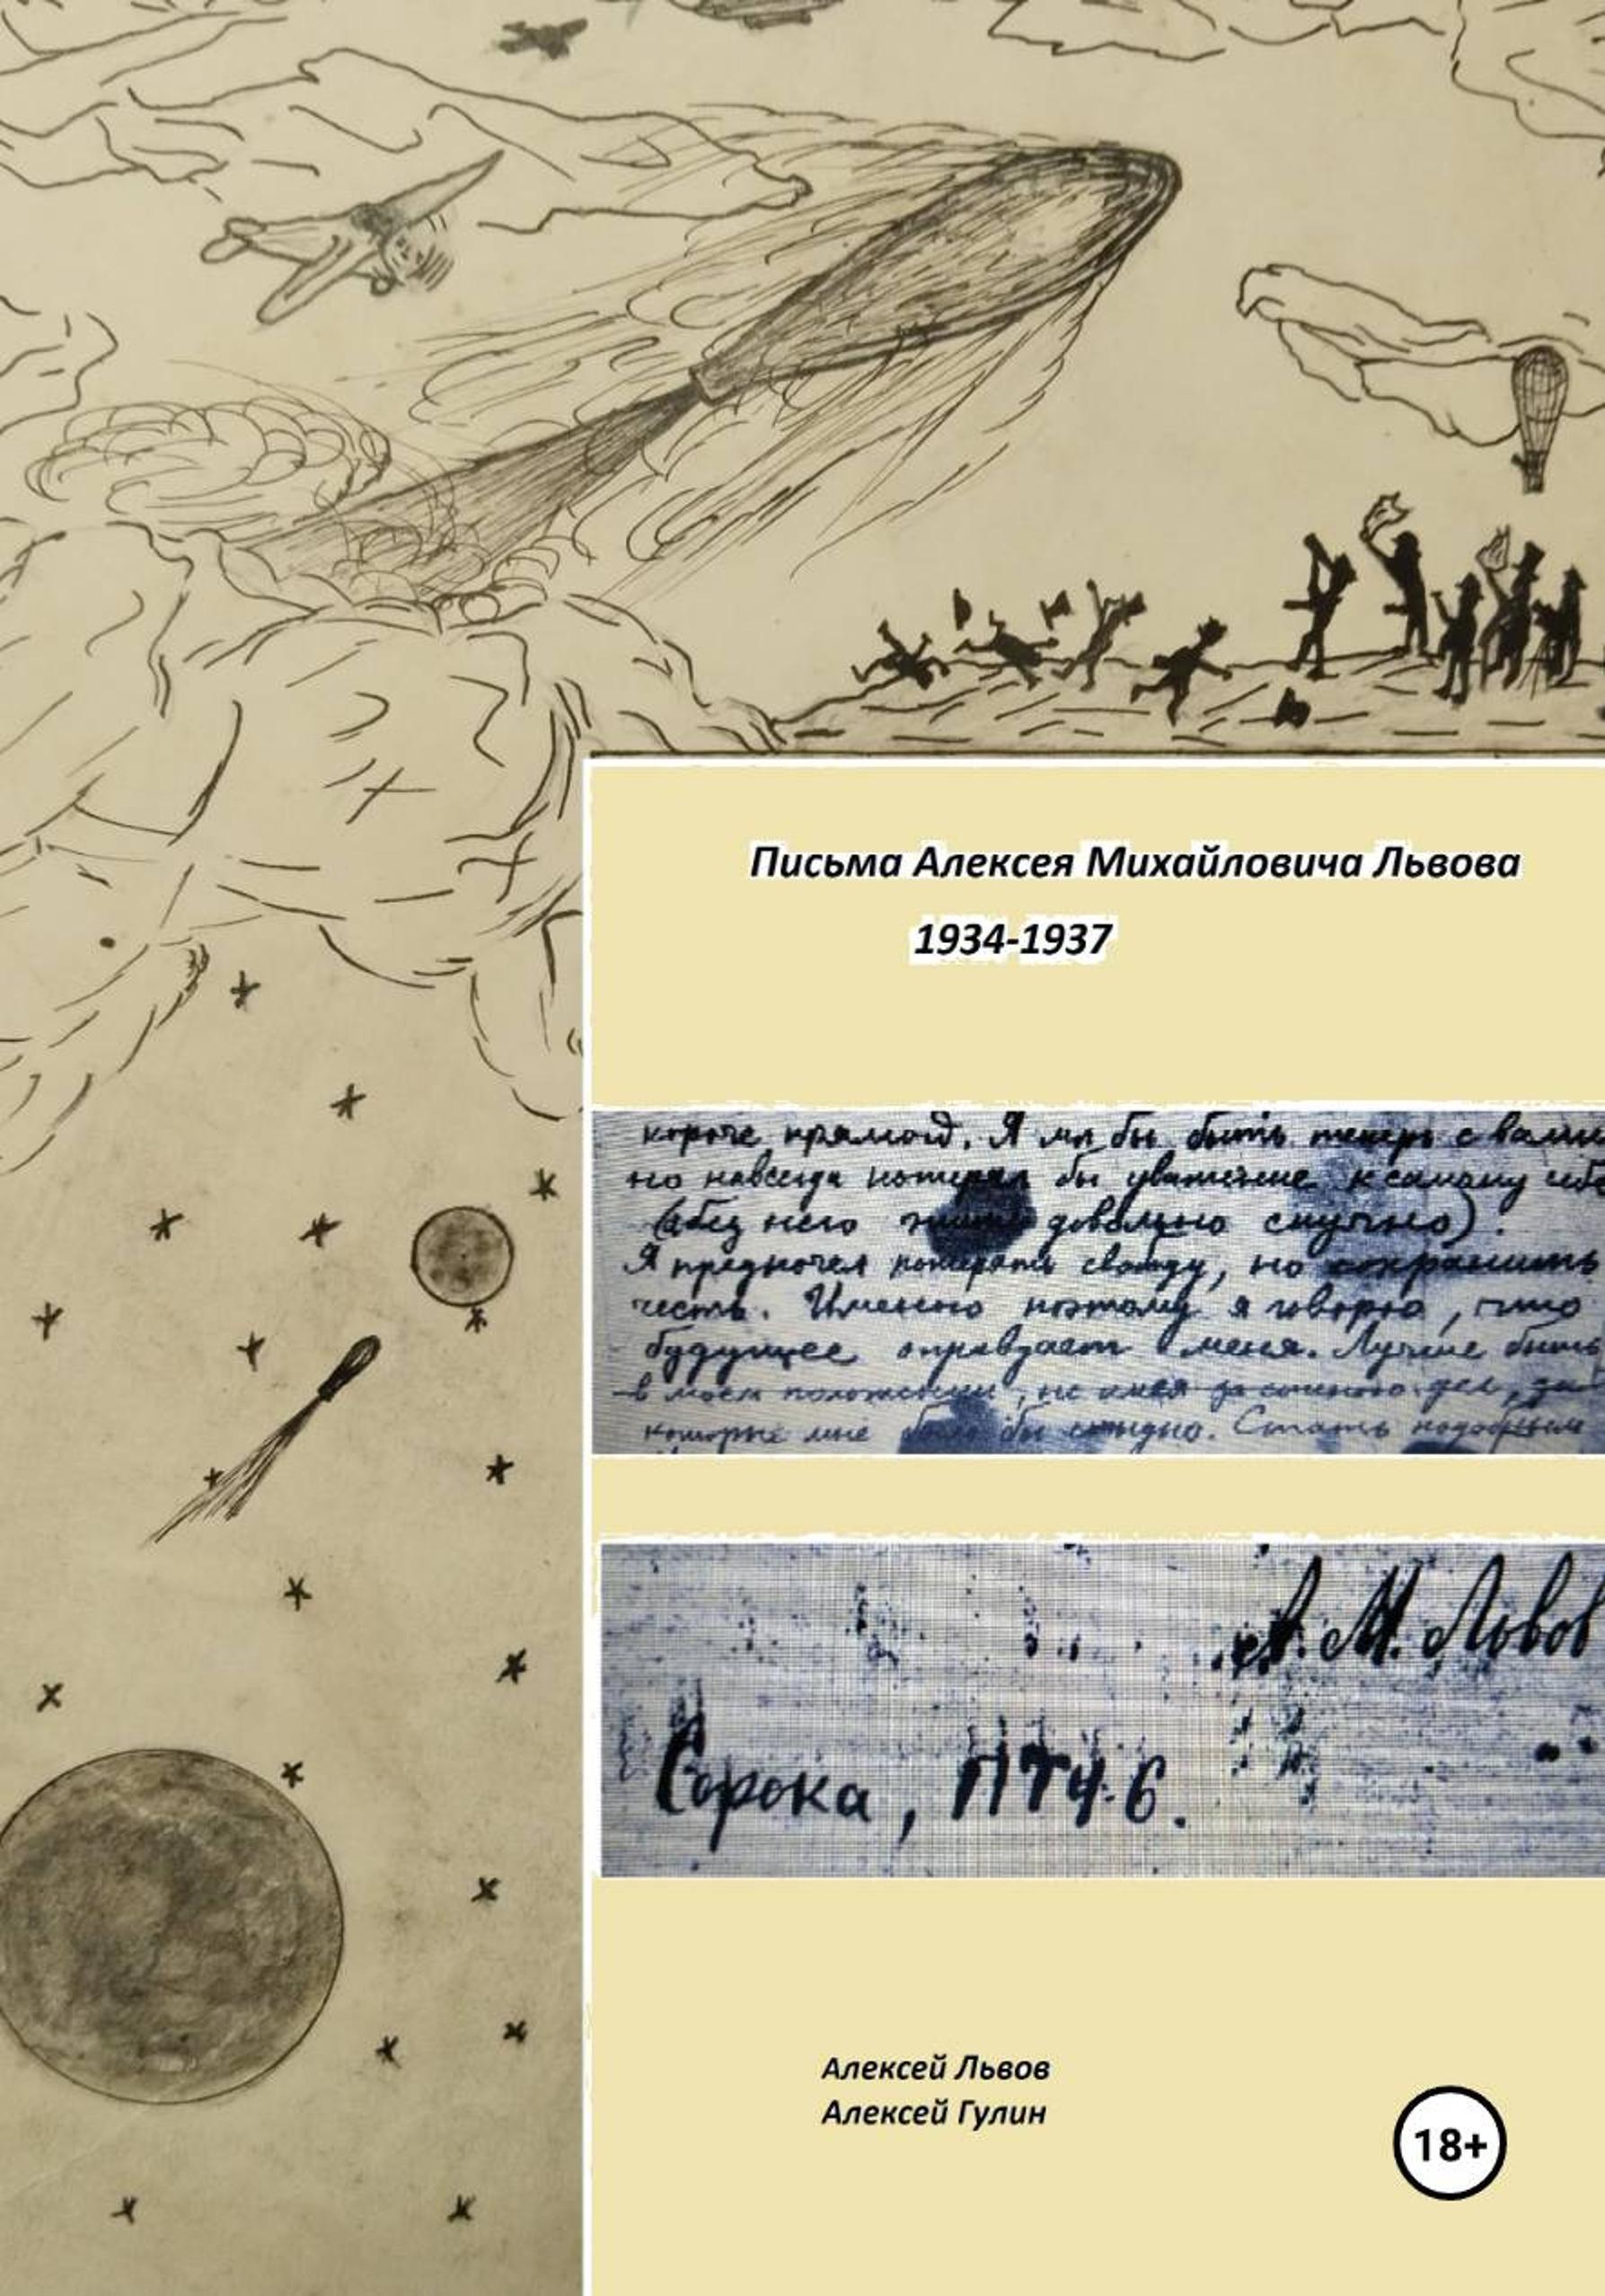 Письма Алексея Михайловича Львова
1934-1937
короче прямой. Я мог бы быть теперь с вами
но навсегда потерял бы уважение к самому себе
(а без него жить довольно скучно).
Я предпочел потерять свободу, но сохранить
честь. Именно поэтому я говорю, что
будущее оправдает меня. Лучше быть
в моем положении, не имея за спиною дел, за
которые мне было бы стыдно. Стать подобным
А. М. Львов
Сорока, ПТЧ-6.
Алексей Львов
Алексей Гулин
18+